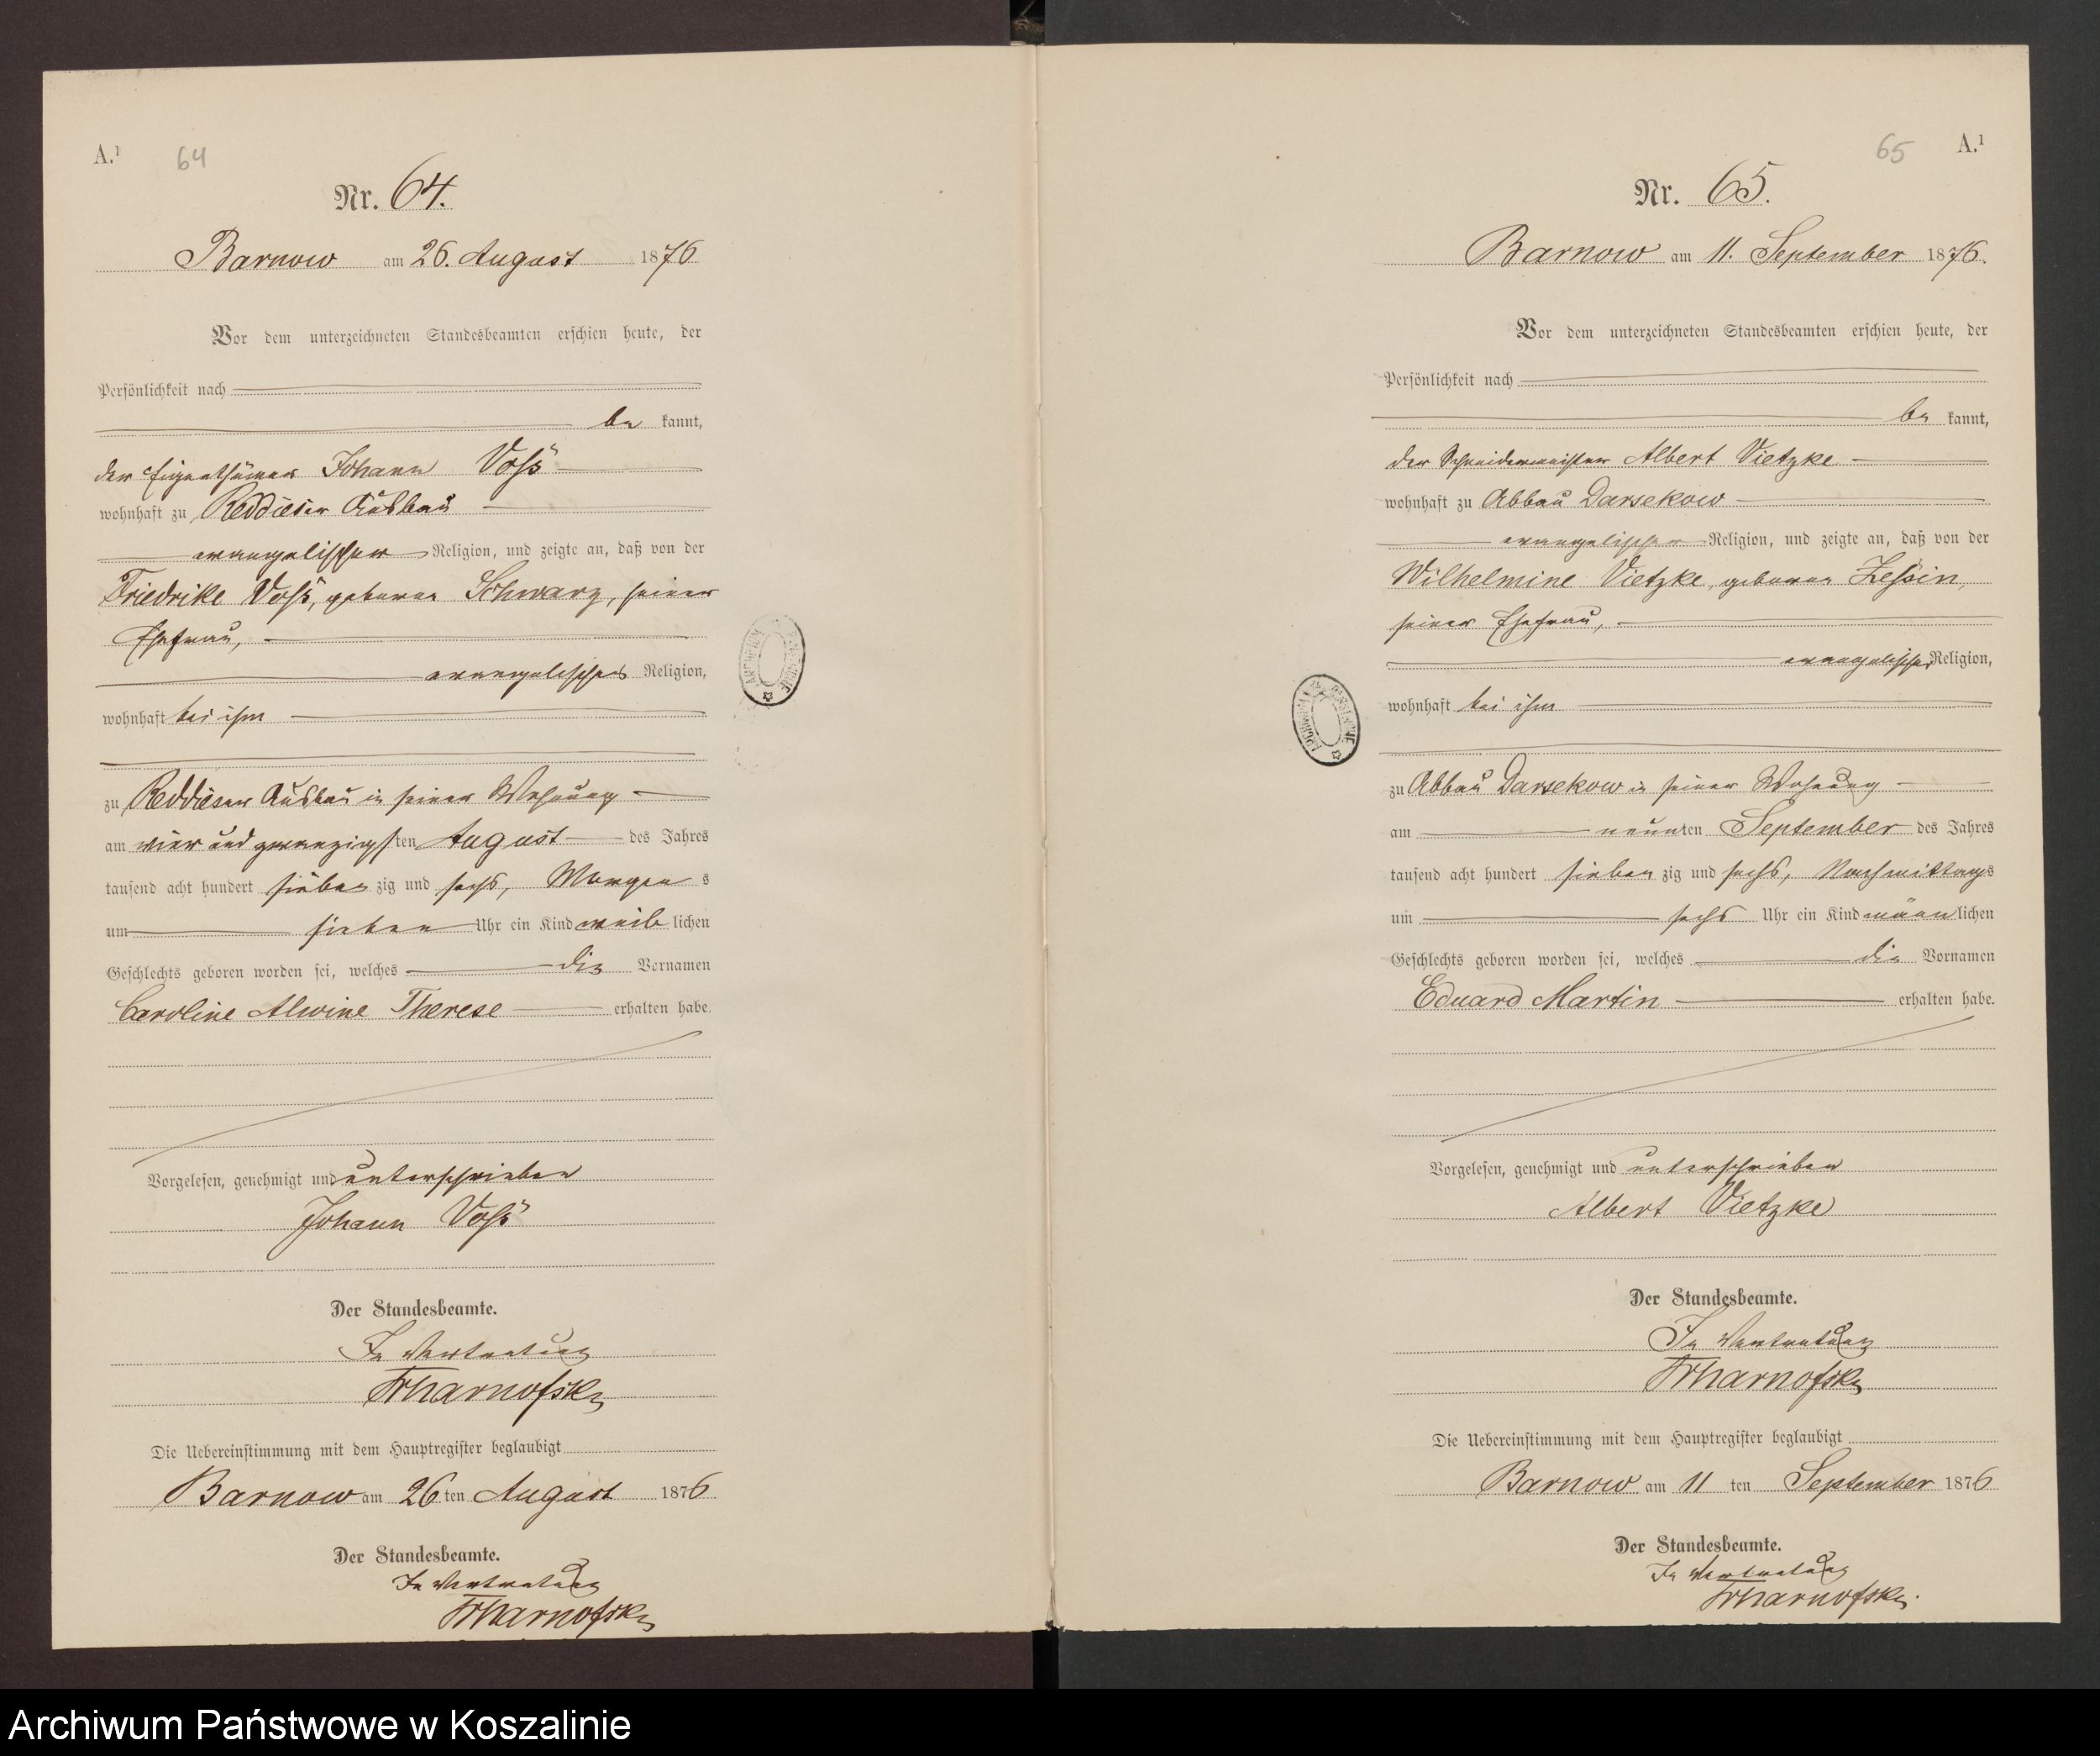 A.¹ 64
Nr. 64.
Barnow am 26. August 1876
Vor dem unterzeichneten Standesbeamten erschien heute, der
Persönlichkeit nach
be kannt,
der Eigenthümer Johann Voß
wohnhaft zu Reddieser Ausbau
evangelischer Religion, und zeigte an, daß von der
Friedrike Voß, geborene Schwarz, seiner
Ehefrau,
evangelischer Religion,
wohnhaft bei ihm
zu Reddieser Ausbau in seiner Wohnung
am vier und zwanzigsten August des Jahres
tausend acht hundert sieben zig und sechs, Morgen s
um sieben Uhr ein Kind weib lichen
Geschlechts geboren worden sei, welches die Vornamen
Caroline Alwine Therese erhalten habe.
Vorgelesen, genehmigt und unterschrieben
Johann Voß
Der Standesbeamte.
In Vertretung
Die Uebereinstimmung mit dem Hauptregister beglaubigt
Barnow am 26 ten August 1876
Der Standesbeamte.
In Vertretung
65 A.¹
Nr. 65.
Barnow am 11. September 1876.
Vor dem unterzeichneten Standesbeamten erschien heute, der
Persönlichkeit nach
be kannt,
der Schneidermeister Albert Vietzke
wohnhaft zu Abbau Darsekow
evangelischer Religion, und zeigte an, daß von der
Wilhelmine Vietzke, geborene Zessin,
seiner Ehefrau,
evangelischer Religion,
wohnhaft bei ihm
zu Abbau Darsekow in seiner Wohnung
am neunten September des Jahres
tausend acht hundert sieben zig und sechs, Nachmittags
um sechs Uhr ein Kind männ lichen
Geschlechts geboren worden sei, welches die Vornamen
Eduard Martin erhalten habe.
Vorgelesen, genehmigt und unterschrieben
Albert Vietzke
Der Standesbeamte.
In Vertretung
Die Uebereinstimmung mit dem Hauptregister beglaubigt
Barnow am 11 ten September 1876
Der Standesbeamte.
In Vertretung
Archiwum Państwowe w Koszalinie